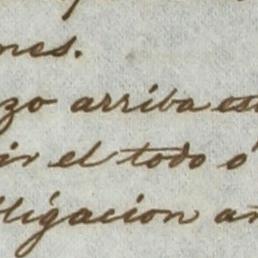 nes.
zo arriba est
ir el todo ó
bligacion an